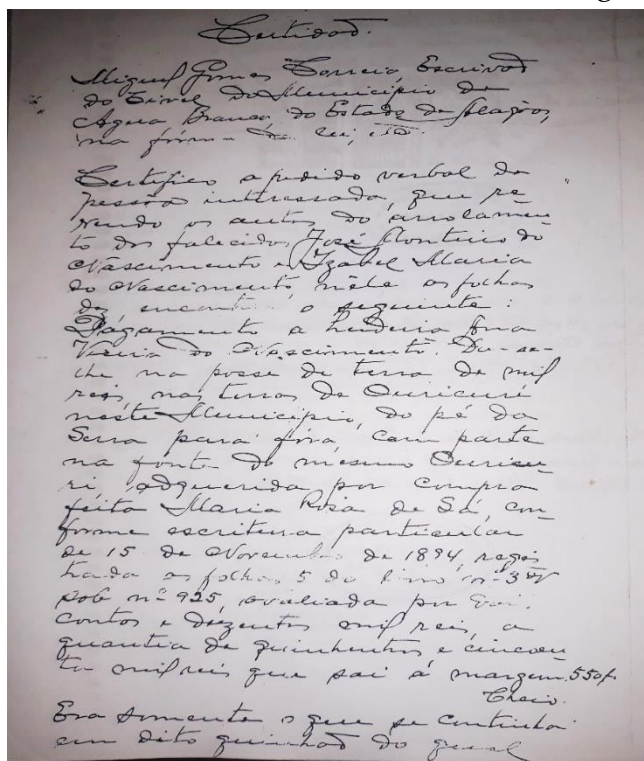 Certidão.
Miguel Gomes Correia, Escrivão
do Civel do Municipio de
Agua Branca, do Estado de Alagôas,
na fórma da lei, etc.
Certifico a pedido verbal de
pessôa interessada, que re-
vendo os autos do arrolamen-
to dos falecidos, José Monteiro do
Nascimento e Izabel Maria
do Nascimento, nele as folhas
dez o seguinte:
Pagamento a herdeira Ana
Vieira do Nascimento. Da-se-
lhe na posse de terra de mil
reis, nas terras de Ouricuri
neste Municipio, do pé da
Serra para fóra, com parte
na fonte do mesmo Ouricu-
ri, adquerida por compra
feita Maria Rosa de Sá, con-
forme escritura particular
de 15 de Novembro de 1894, regis-
trada as folhas 5 do livro nº 3
sob nº 925, avaliada por
contos e duzentos mil reis, a
quantia de quinhentos e cincoen-
ta mil reis que sai á margem. 550$
Era somente o que se continha
em dito quinhão do qual